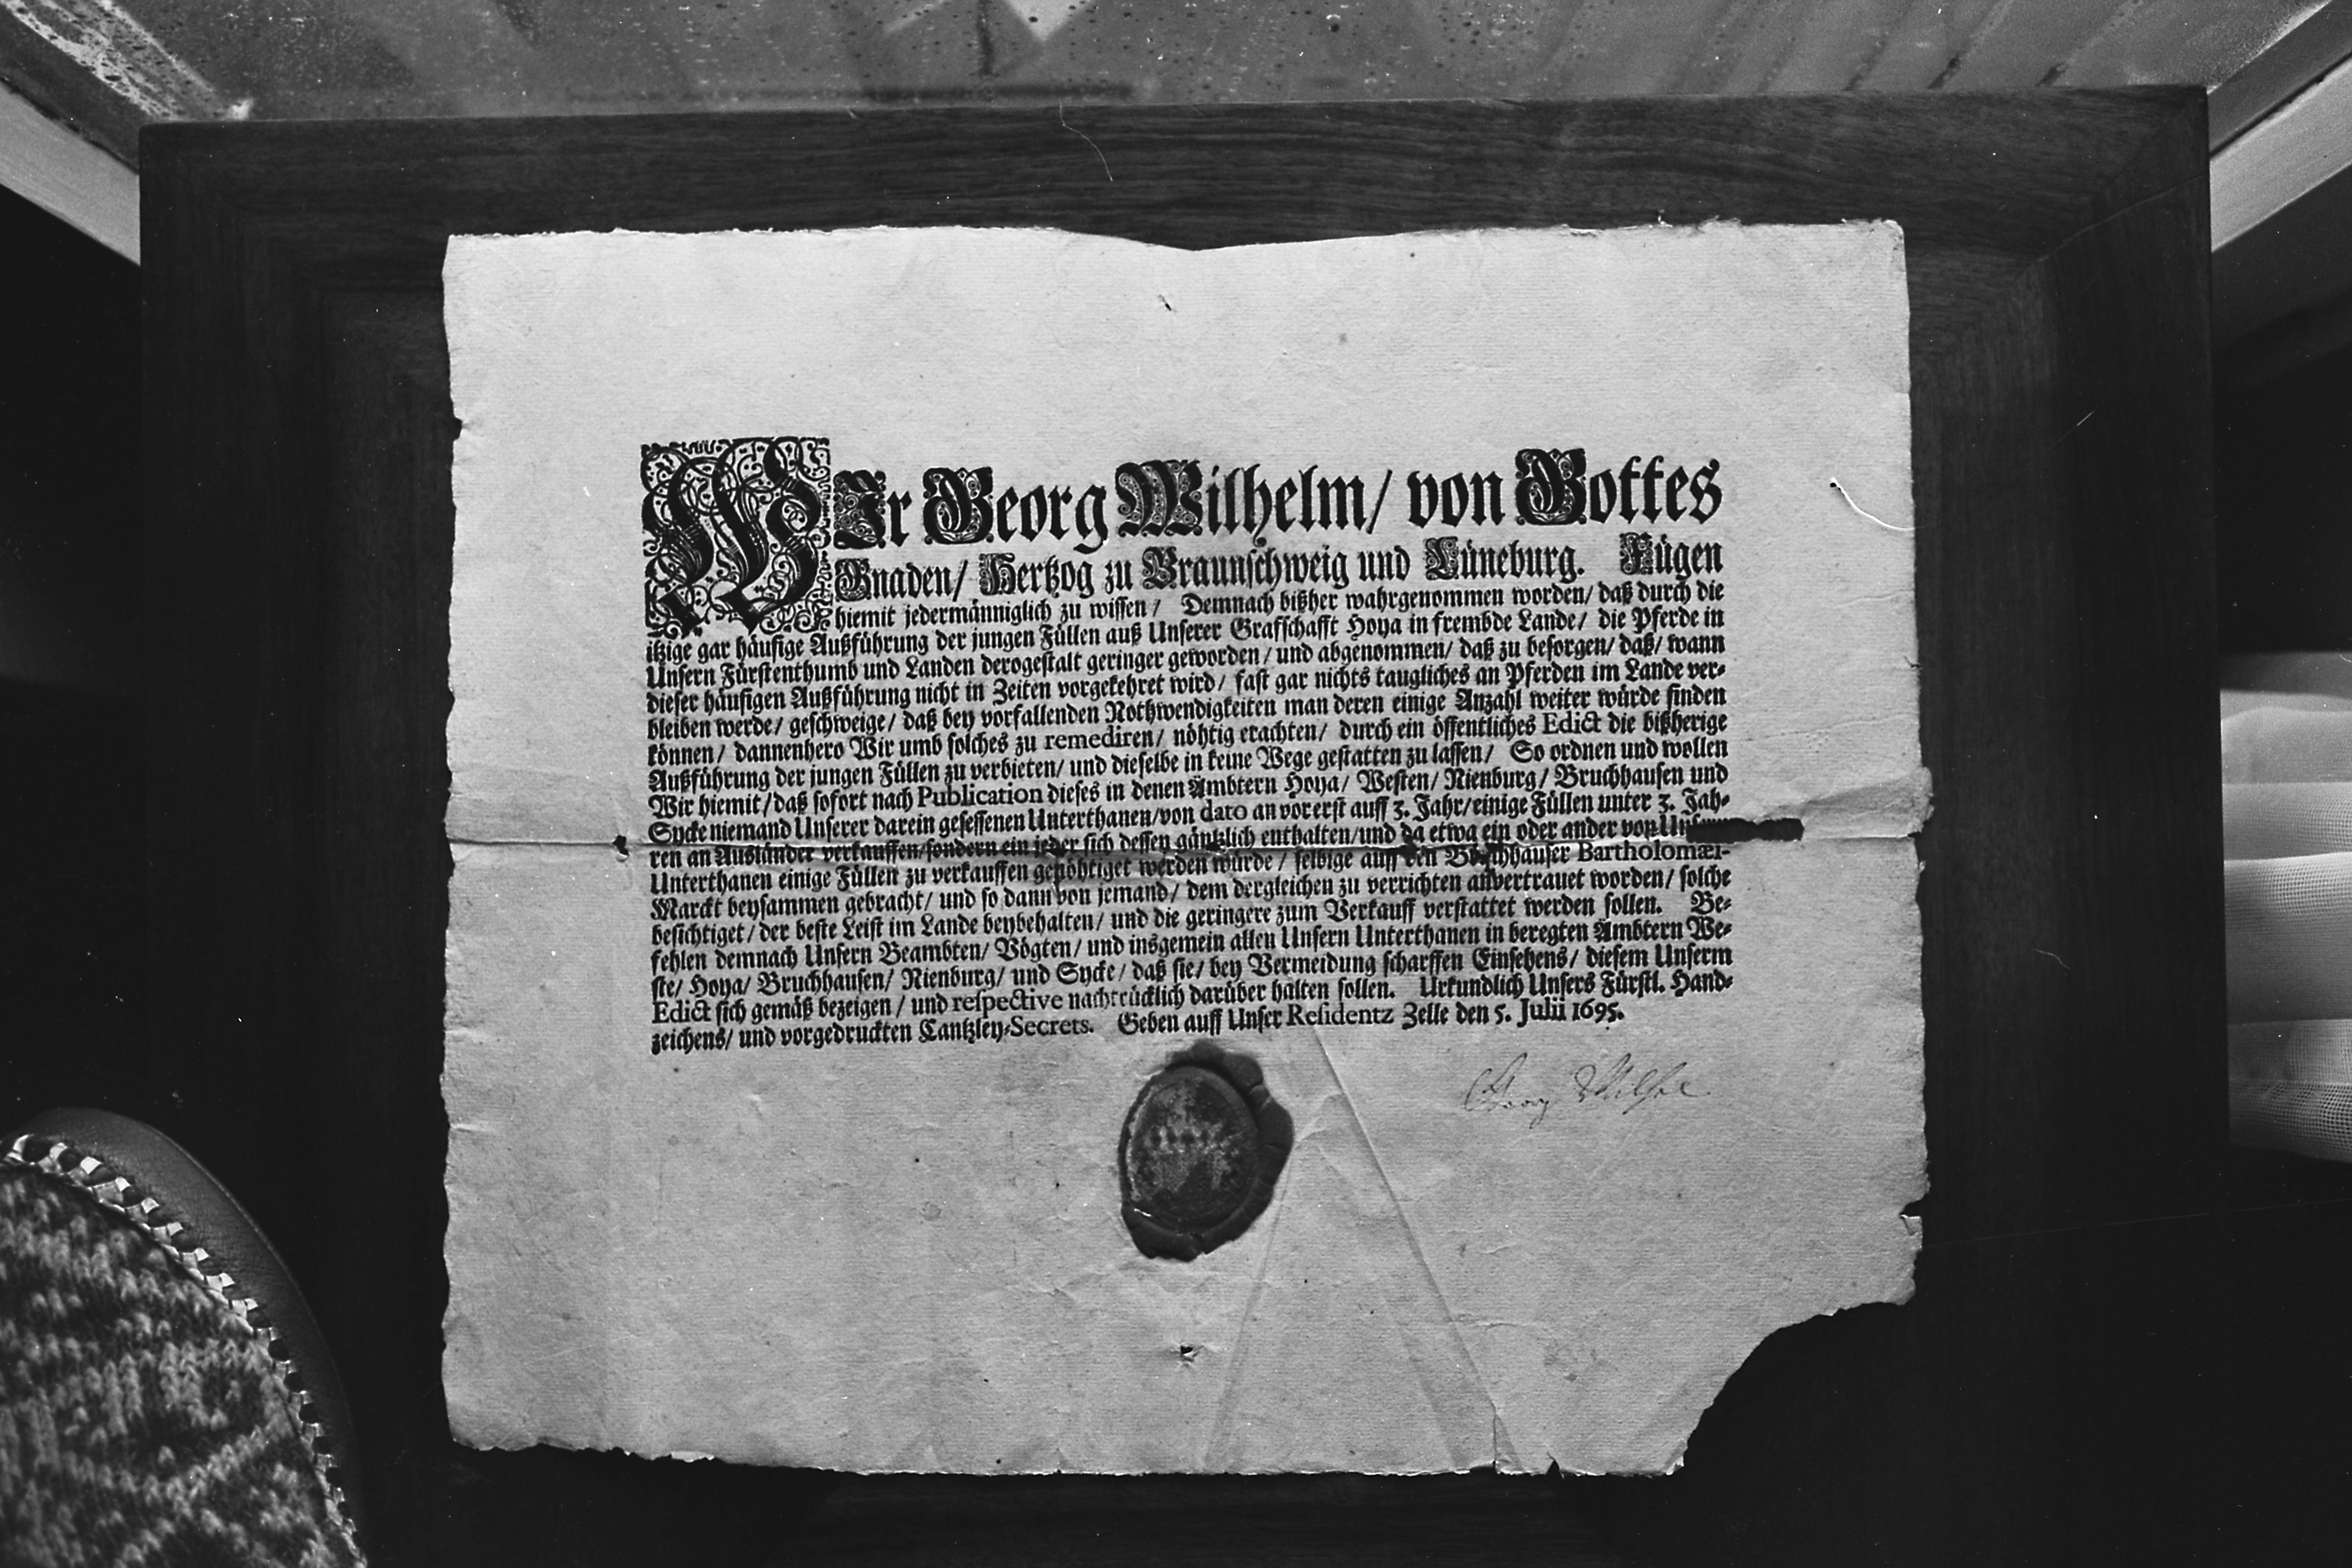 WIr Georg Wilhelm/ von Gottes
Gnaden/ Hertzog zu Braunschweig und Lüneburg. Fügen
hiemit jedermänniglich zu wissen/ Demnach bißher wahrgenommen worden/ daß durch die
itzige gar häufige Außführung der jungen Füllen auß Unserer Grafschafft Hoya in frembde Lande/ die Pferde in
Unsern Fürstenthumb und Landen derogestalt geringer geworden/ und abgenommen/ daß zu besorgen/ daß/ wann
dieser häufigen Außführung nicht in Zeiten vorgekehret wird/ fast gar nichts taugliches an Pferden im Lande ver-
bleiben werde/ geschweige/ daß bey vorfallenden Nothwendigkeiten man deren einige Anzahl weiter würde finden
können/ dannenhero Wir umb solches zu remediren/ nöhtig erachten/ durch ein öffentliches Edict die bißherige
Außführung der jungen Füllen zu verbieten/ und dieselbe in keine Wege gestatten zu lassen/ So ordnen und wollen
Wir hiemit/ daß sofort nach Publication dieses in denen Ämbtern Hoya/ Westen/ Nienburg/ Bruchhausen und
Sycke niemand Unserer darein gesessenen Unterthanen/von dato an vorerst auff 3. Jahr/einige Füllen unter 3. Jah-
ren an Ausländer verkauffen/sondern ein jeder sich dessen gäntzlich enthalten/und da etwa ein oder ander von
Unterthanen einige Füllen zu verkauffen genöhtiget werden würde/ selbige auff den Bruchhauser Bartholomæi-
Marckt beysammen gebracht/ und so dann von jemand/ dem dergleichen zu verrichten anvertrauet worden/ solche
besichtiget/ der beste Leist im Lande beybehalten/ und die geringere zum Verkauff verstattet werden sollen. Be-
fehlen demnach Unsern Beambten/ Vögten/ und insgemein allen Unsern Unterthanen in beregten Ämbtern We-
ste/ Hoya/ Bruchhausen/ Nienburg/ und Sycke/ daß sie/ bey Vermeidung scharffen Einsehens/ diesem Unserm
Edict sich gemäß bezeigen/ und respective nachtrücklich darüber halten sollen. Urkundlich Unsers Fürstl. Hand-
zeichens/ und vorgedruckten Cantzley-Secrets. Geben auff Unser Residentz Zelle den 5. Julii 1695.
Georg Wilhelm